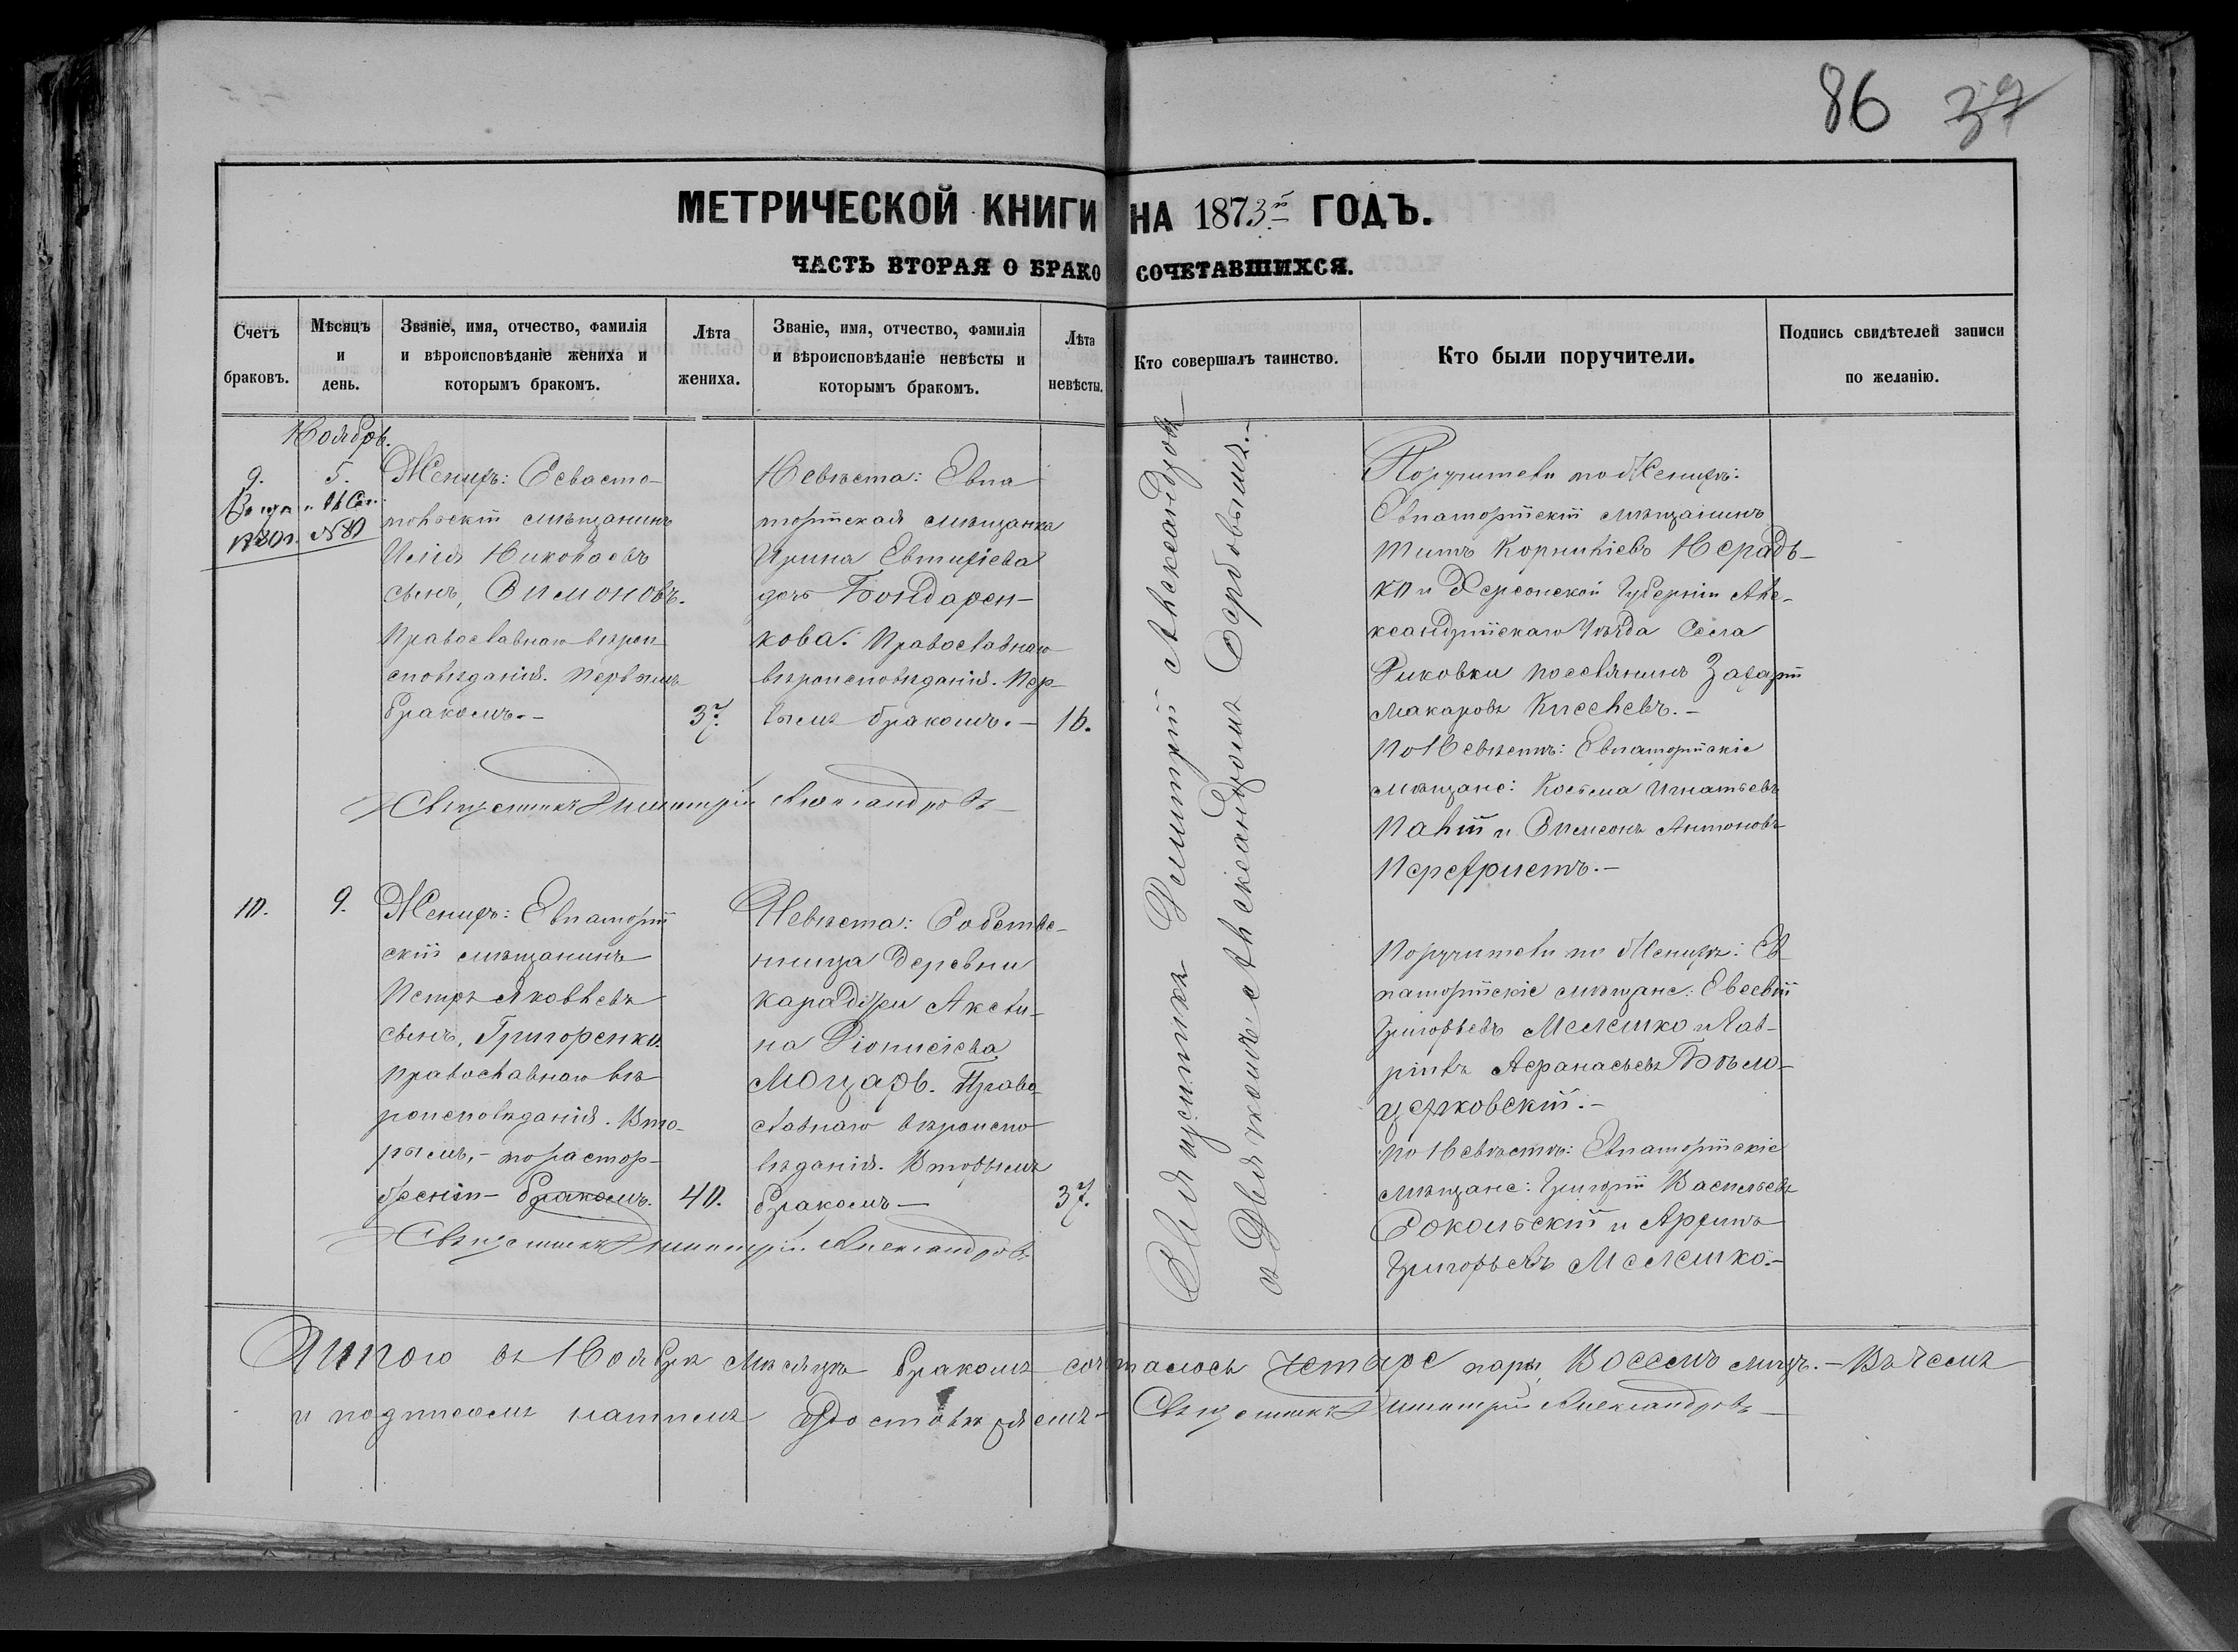 86 37
МЕТРИЧЕСКОЙ КНИГИ НА 1873й ГОДЪ.
ЧАСТЬ ВТОРАЯ О БРАКОСОЧЕТАВШИХСЯ.
Счетъ
браковъ.
Мѣсяцъ
и
день.
Званіе, имя, отчество, фамилія
и вѣроисповѣданіе жениха и
которымъ бракомъ.
Лѣта
жениха.
Званіе, имя, отчество, фамилія
и вѣроисповѣданіе невѣсты и
которымъ бракомъ.
Лѣта
невѣсты.
Кто совершалъ таинство.
Кто были поручители.
Подпись свидѣтелей записи
по желанію.
Ноябрь.
9.
5.
№ 80
Женихъ: Севасто-
польскій мѣщанинъ
Илія Николаевъ
сынъ, Симоновъ.
Православнаго вѣрои-
сповѣданія. Первымъ
бракомъ.-
37.
Невѣста: Евпа
торійская мѣщанка
Ирина Евтихіева
дочь Бондарен-
кова. Православнаго
вѣроисповѣданія. Пер-
вымъ бракомъ.-
16.
Священникъ Димитрій Александровъ
Священникъ Димитрій Александровъ
съ Дьячкомъ Александромъ Сербовымъ.-
Поручители по Женихѣ:
Евпаторійскій мѣщанинъ
Титъ Корниліевъ Нерадь-
ко и Херсонской Губерніи Але-
ксандрійскаго Уѣзда Села
Диковки поселянинъ Захарій
Макаровъ Киселевъ.-
По Невѣстѣ: Евпаторійскіе
мѣщане: Косьма Игнатьевъ
Палій и Симеонъ Антоновъ
Перехристъ.-
10.
9.
Женихъ: Евпаторій
скій мѣщанинъ
Петръ Яковлевъ
сынъ, Григоренко.
Православнаго вѣ
роисповѣданія. Вто-
рымъ,- по растор-
женіи- бракомъ.
40.
Невѣста: Собстве-
нница Деревни
Караджи Аксти-
на Діонисіева
Моцарь. Право
славнаго вѣроиспо
вѣданія. Вторымъ
бракомъ-
37.
Священникъ Димитрій Александровъ
Поручители по Женихѣ: Ев
паторійскіе мѣщане: Евсевій
Григорьевъ Мелешко и Гав-
ріилъ Афанасьевъ Бѣло-
церковскій.-
По Невѣстѣ: Евпаторійскіе
мѣщане: Григорій Васильевъ
Сокольскій и Архипъ
Григорьевъ Мелешко.-
Итого въ Ноябрѣ Мѣсяцѣ бракомъ сочеталось четыре пары, Восемь лицъ.- Въ чемъ
и подписомъ нашимъ Удостовѣряемъ- Священникъ Димитрій Александровъ